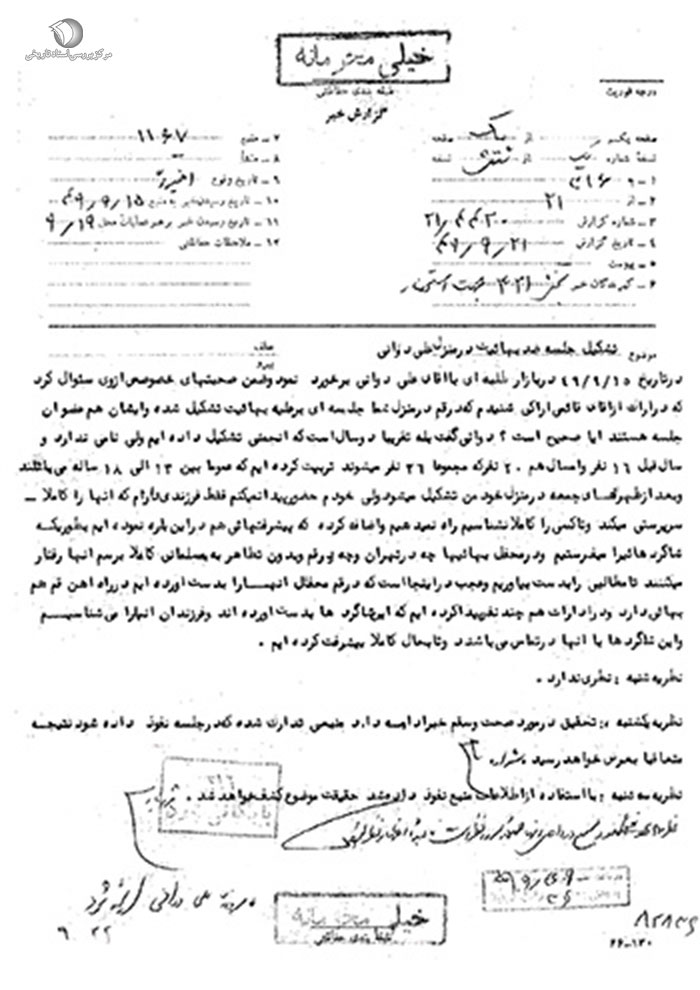 مرکز بررسی اسناد تاریخی
خیلی محرمانه
طبقه بندی حفاظتی
گزارش خبر
درجه فوریت
صفحه یکم از یک صفحه
نسخه شماره از نسخه
۱ - به ۳۱۶
۲ - از ۲۱
۳ - شماره گزارش
۴ - تاریخ گزارش ۴۹/۹/۲۱
۵ - پیوست
۶ - گیرندگان خبر بخش ۳۲۱ جهت استحضار
۷ - منبع ۱۱۰۶۷
۸ - منشأ
۹ - تاریخ وقوع اخیرا
۱۰ - تاریخ رسیدن خبر به منبع ۴۹/۹/۱۵
۱۱ - تاریخ رسیدن خبر به رهبر عملیات محل ۹/۱۹
۱۲ - ملاحظات حفاظتی
موضوع تشکیل جلسه ضد بهائیت در منزل علی دوانی
عطف
پیرو
درتاریخ ۴۹/۹/۱۵ دربازار طلبه ای باآقای علی دوانی برخورد نمود وضمن صحبتهای خصوصی ازوی سئوال کرد
که دراراک ازآقای قائمی اراکی شنیدم که درقم درمنزل شما جلسه ای برعلیه بهائیت تشکیل شده وایشان هم عضو آن
جلسه هستند آیا صحیح است ؟ دوانی گفت بله تقریبا دوسال است که انجمنی تشکیل داده ایم ولی نامی ندارد و
سال قبل ۱۶ نفر وامسال هم ۲۰ نفرکه مجموعا ۳۶ نفر میشوند تربیت کرده ایم که عموما بین ۱۳ الی ۱۸ ساله می باشند
وبعد ازظهرهای جمعه درمنزل خود من تشکیل میشود ولی خودم حضورپیدا نمیکنم فقط فرزندی دارم که آنها را کاملا -
سرپرستی میکند وتاکسی را کاملا نشناسیم راه نمیدهیم واضافه کرد که پیشرفتهائی هم دراین باره نموده ایم بطوریکه
شاگردهائیرا میفرستیم ودرمحفل بهائیها چه درتهران وچه درقم وبدون تظاهر به مسلمانی کاملا برسم آنها رفتار
میکنند تامطالبی رابدست بیاوریم وعجب دراینجااست که درقم محفال آنهارا بدست آورده ایم درراه آهن قم هم
بهائی دارد ودرادارات هم چند نفرپیداکرده ایم که این شاگردها بدست آورده اند وفرزندان آنهارا می شناسیم
واین شاگردها با آنها درتماس می باشند وتابحال کاملا پیشرفت کرده ایم .
نظریه شنبه : نظری ندارد .
نظریه یکشنبه : تحقیق درمورد صحت وسقم خبرادامه دارد ضمنی تدارک شده که درجلسه نفوذ داده شود نتیجه
متعاقبا بعرض خواهد رسید
نظریه سه شنبه : با استفاده ازاطلاعات منبع نفوذ داده شد حقیقت موضوع کشف خواهد شد .
پرونده علی دوانی ارائه شود
خیلی محرمانه
طبقه بندی حفاظتی
۲۶-۱۳۰